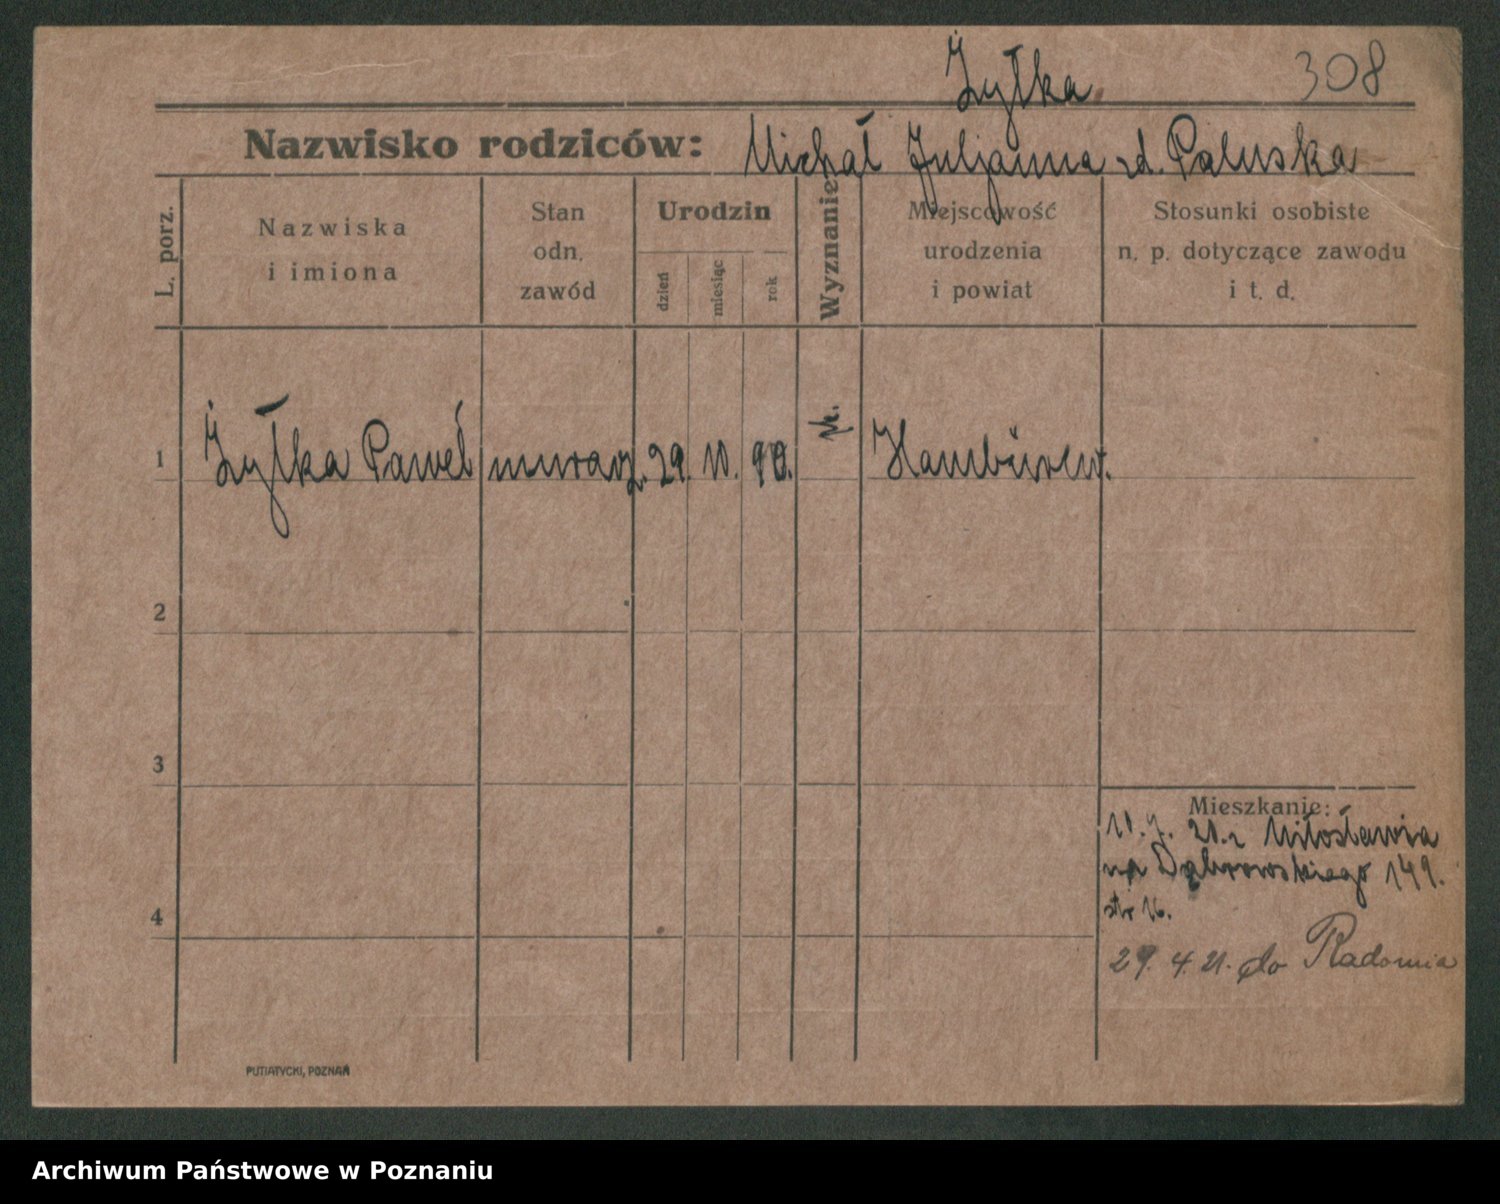 Żyłka 308
Nazwisko rodziców: Michał Juljanna zd. Paluska
L. porz.
Nazwiska
i imiona
Stan
odn.
zawód
Urodzin
dzień
miesiąc
rok
Wyznanie
Miejscowość
urodzenia
i powiat
Stosunki osobiste
n. p. dotyczące zawodu
i t. d.
1 Żyłka Paweł murarz. 29. 10.
2
3
4
Mieszkanie:
Miłosławia
na Dąbrowskiego 149.
str 16.
29. 4. 21. do Radomia
PUTIATYCKI, POZNAŃ
Archiwum Państwowe w Poznaniu